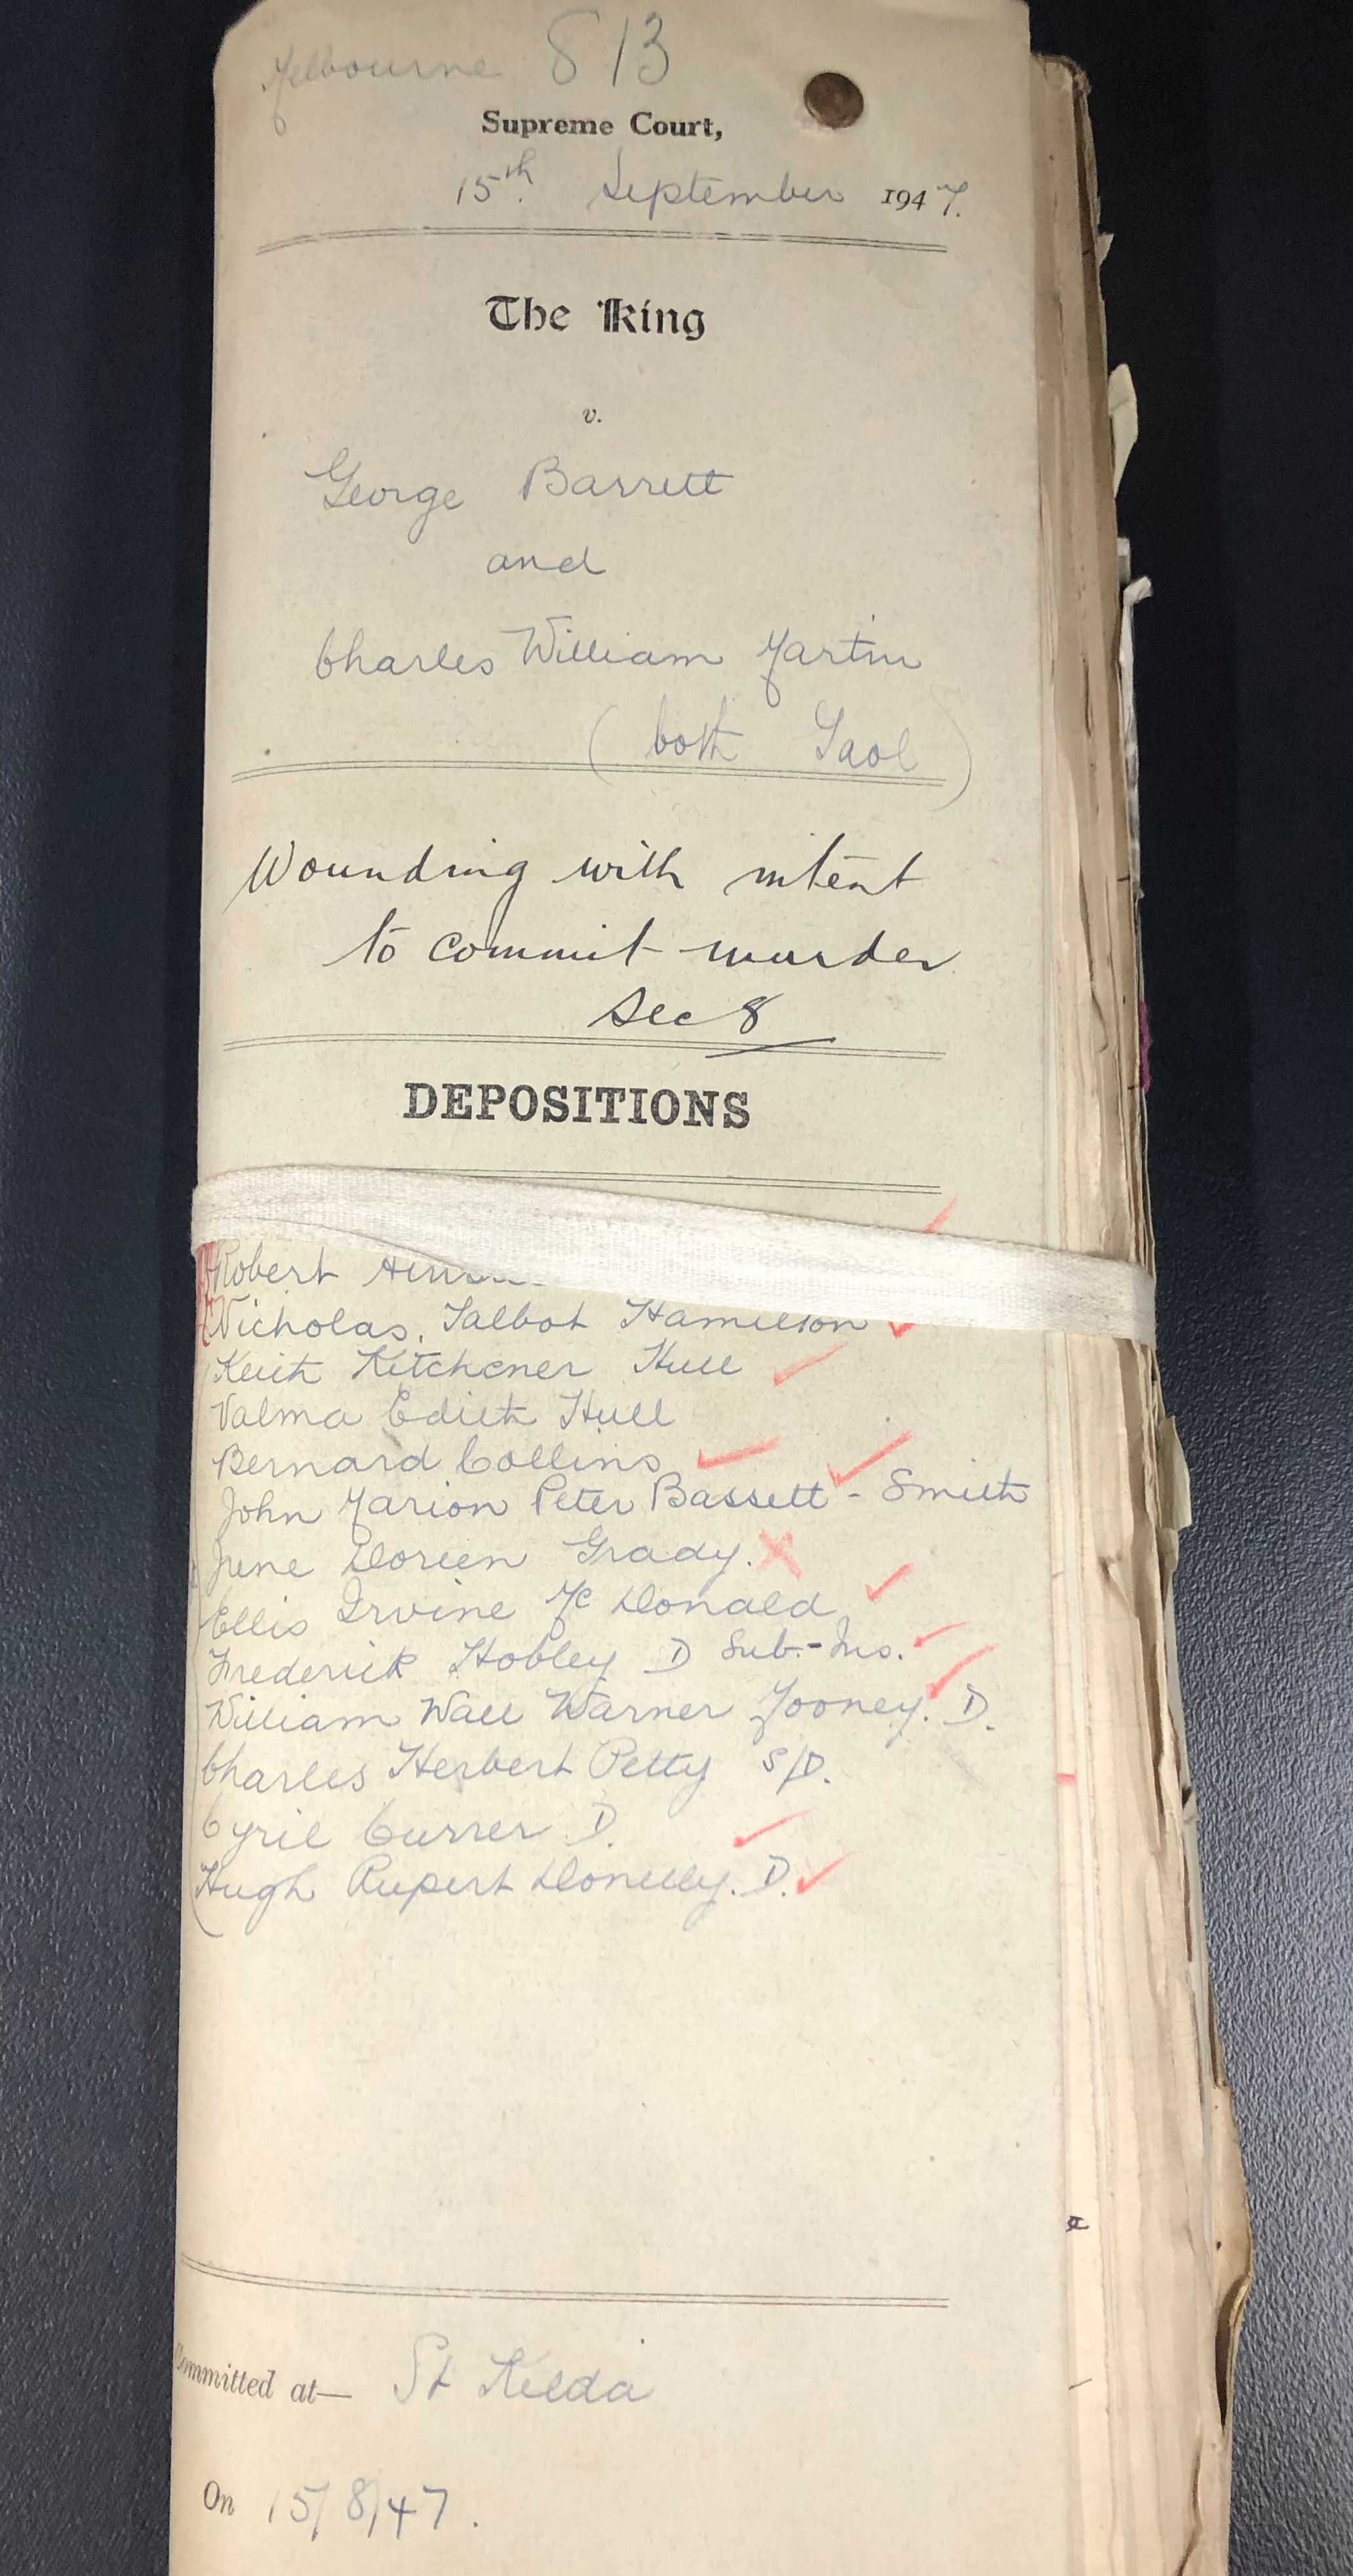 Melbourne 813
Supreme Court,
15th September 1947.
The King
v.
George Barrett
and
Charles William Martin
(both Gaol)
Wounding with intent
to commit murder
Sec 8
DEPOSITIONS
Robert
Nicholas Talbot Hamilton
Keith Kitchener Hull
Valma Edith Hull
Bernard Collins
John Marion Peter Bassett-Smith
June Doreen Grady.
Ellis Irvine McDonald
Frederick Hobley D Sub.-Ins.
William Wall Warner Mooney. D.
Charles Herbert Petty S/D.
Cyril Currer D.
Hugh Rupert Donelly. D.
Committed at— St Kilda
On 15/8/47.